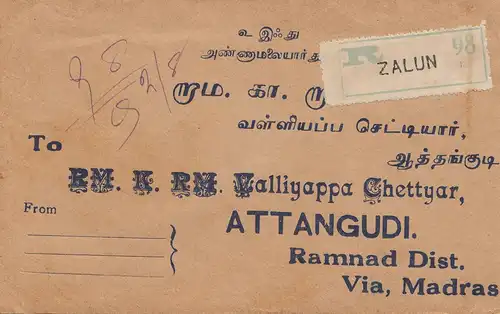 உ இஃது
அண்ணாமலையார் து
R 98
ZALUN
ரூம. கா. ரூ
வள்ளியப்ப செட்டியார்,
ஆத்தங்குடி
To
RM. K. RM. Valliyappa Chettyar,
From
ATTANGUDI.
Ramnad Dist.
Via, Madras